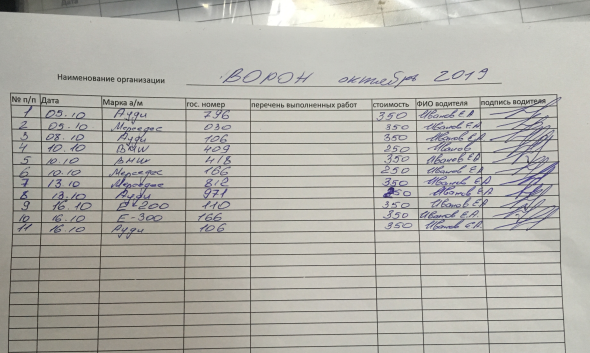 Дата
Наименование организации ВОРОН октябрь 2019
№ п/п Дата Марка а/м гос. номер перечень выполненных работ стоимость ФИО водителя подпись водителя
1 05.10 Ауди 796 350 Иванов Е.А
2 05.10 Мерседес 030 350 Иванов Е.А
3 08.10 Ауди 106 350 Иванов Е.А
4 10.10 BMW 409 250 Иванов
5 10.10 BMW 418 350 Иванов Е.А
6 10.10 Мерседес 166 250 Иванов Е.А
7 13.10 Мерседес 812 350 Иванов Е.А
8 13.10 Ауди 971 350 Иванов Е.А
9 16.10 200 110 350 Иванов Е.А
10 16.10 Е-300 166 350 Иванов Е.А
11 16.10 Ауди 106 350 Иванов Е.А